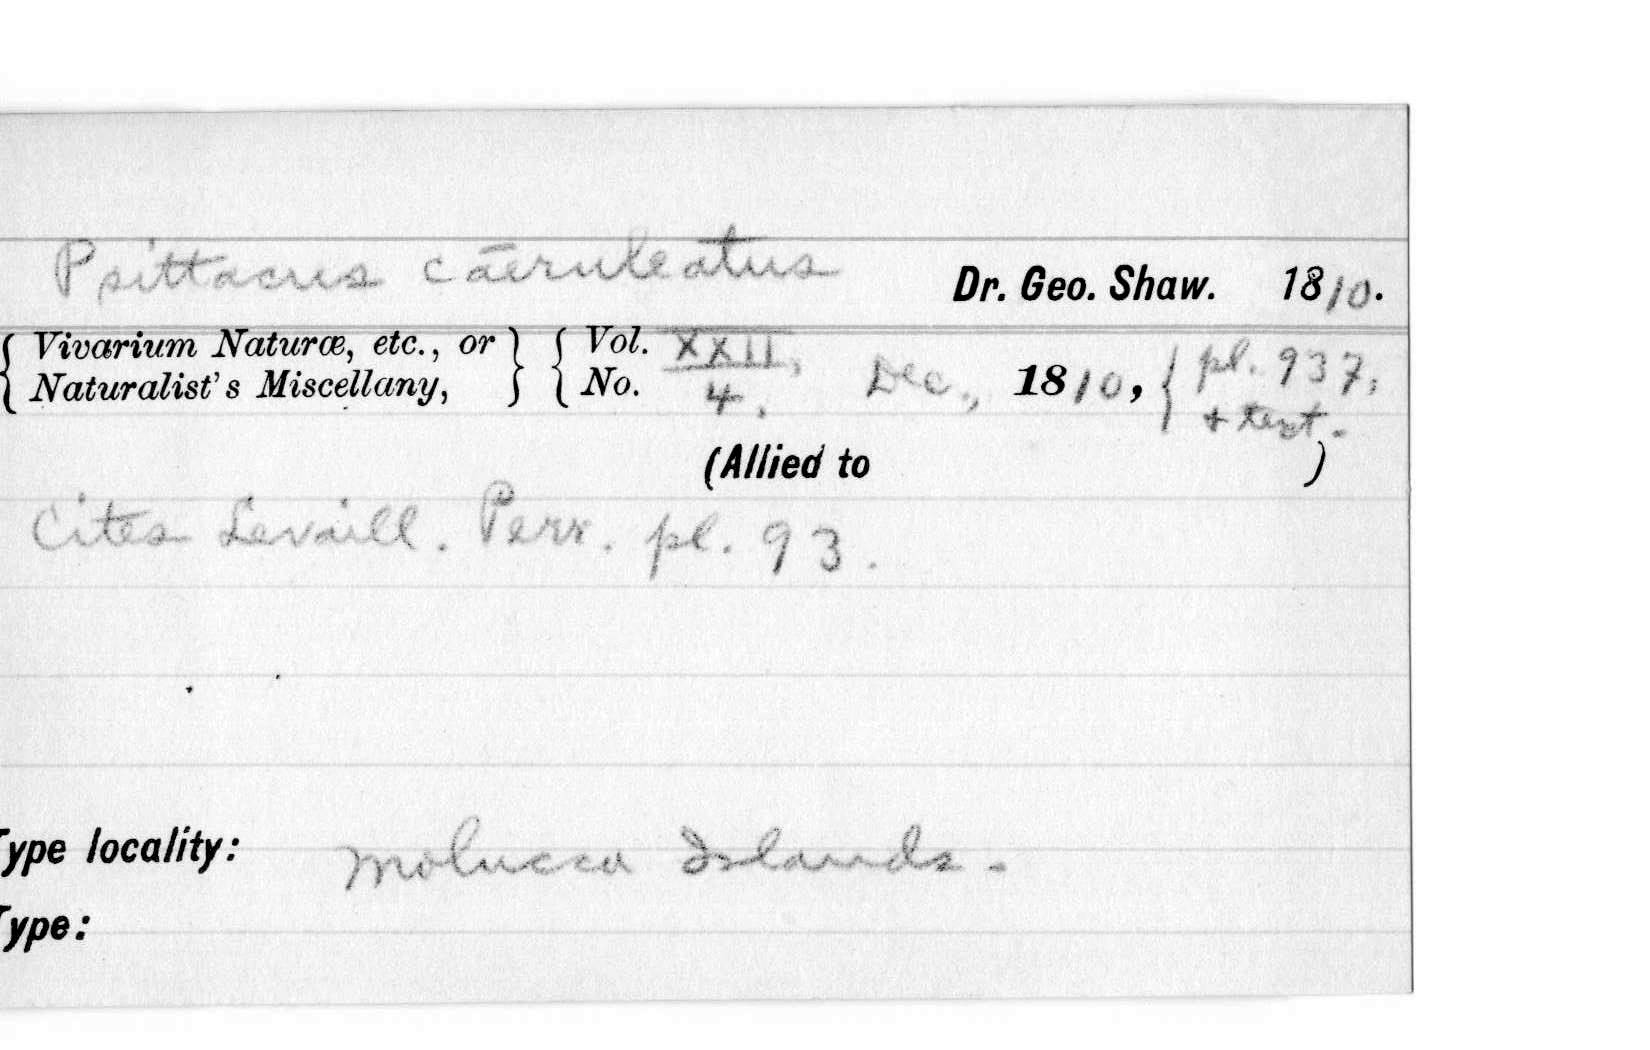 Psittacus cæruleatus Dr. Geo. Shaw. 1810.
{ Vivarium Naturæ, etc., or } { Vol. XXII,
{ Naturalist's Miscellany, } { No. 4. Dec., 1810, { pl. 937,
+ text.
(Allied to )
Cites Levaill. Perr. pl. 93.
Type locality: Molucca Islands.
Type: